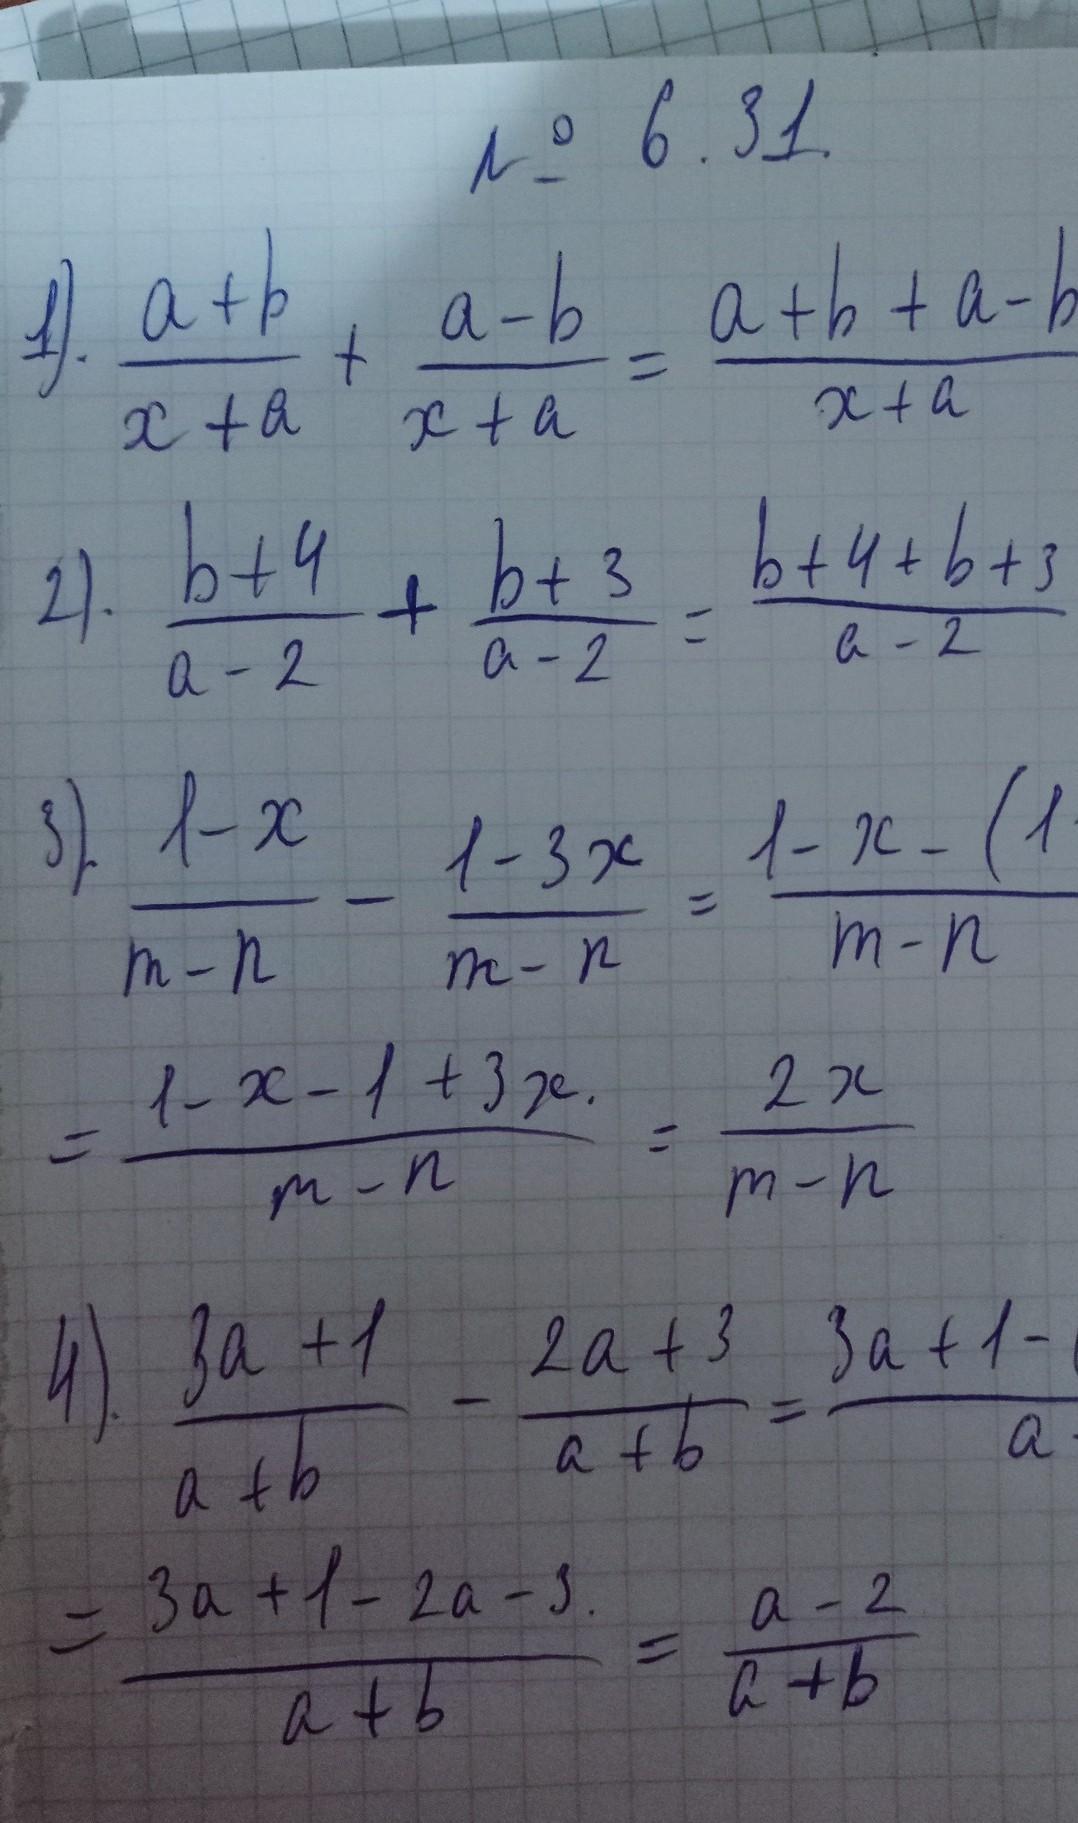 № 6.31.
1). (a+b)/(x+a) + (a-b)/(x+a) = (a+b+a-b)/(x+a)
2). (b+4)/(a-2) + (b+3)/(a-2) = (b+4+b+3)/(a-2)
3). (1-x)/(m-n) - (1-3x)/(m-n) = (1-x-(1-)/(m-n)
= (1-x-1+3x.)/(m-n) = 2x/(m-n)
4). (3a+1)/(a+b) - (2a+3)/(a+b) = (3a+1-()/(a
= (3a+1-2a-3.)/(a+b) = (a-2)/(a+b)